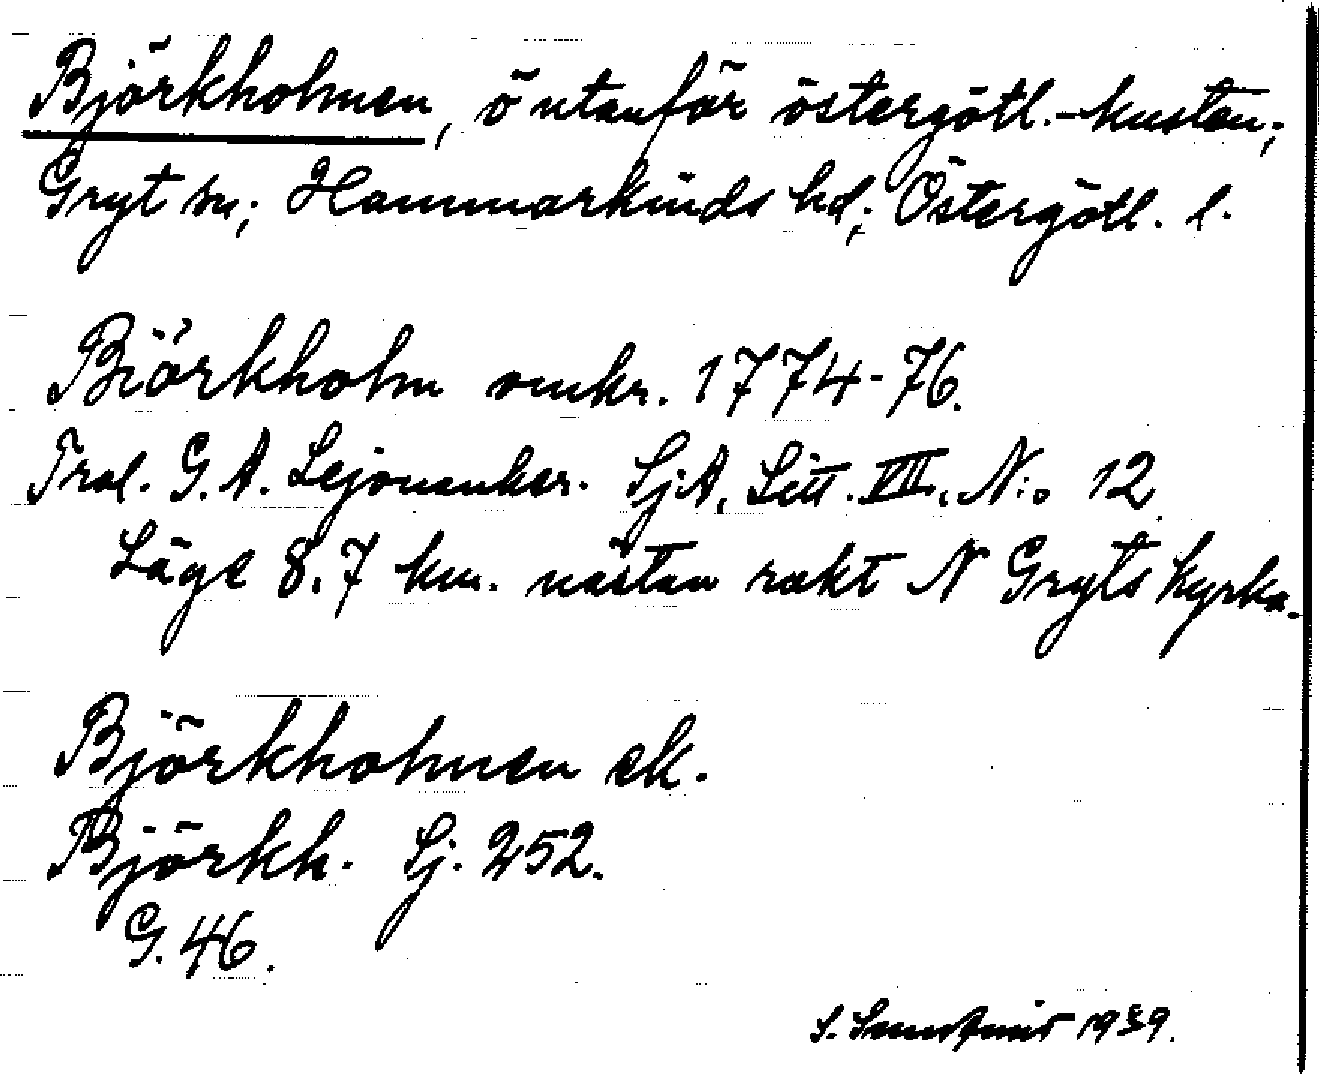 Björkholmen, ö utanför östergötl.-kusten;
Gryt sn; Hammarkinds hd; Östergötl. l.
Biörkholm omkr. 1774-76.
Tral. G. A. Lejonanker. SjA, Litt. VII, N:o 12
Läge 8.7 km. nästan rakt N Gryts kyrka.
Björkholmen ek.
Björkh. Sj. 252.
G. 46.
S. 1939.